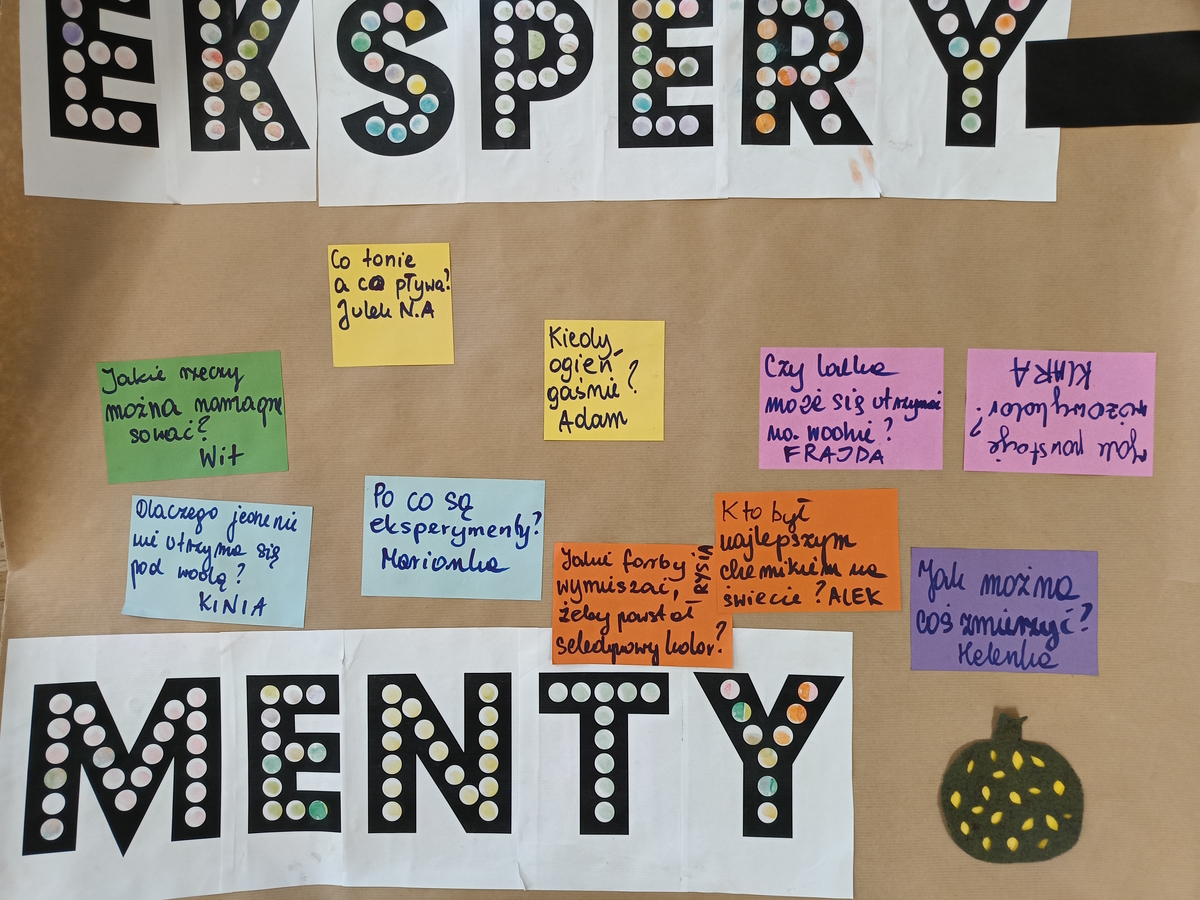 EKSPERY
Co tonie
a co pływa?
Julek N.A
Kiedy
ogień
gaśnie?
Adam
Jakie rzeczy
można namagne
sować?
Wit
Czy lalka
może się utrzymać
na wodzie?
FRAJDA
Jak powstaje
różowy kolor?
KLARA
Dlaczego jedzenie
nie utrzyma się
pod wodą?
KINIA
Po co są
eksperymenty?
Marianka
Jakie farby
wymieszać,
żeby powstał
seledynowy kolor?
RYSIA
Kto był
najlepszym
chemikiem na
świecie? ALEK
Jak można
coś zmierzyć?
Helenka
MENTY